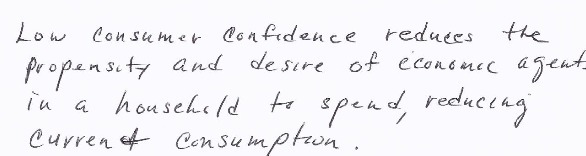 Low Consumer Confidence reduces the
propensity and desire of economic agent
in a household to spend, reducing
Current Consumption.